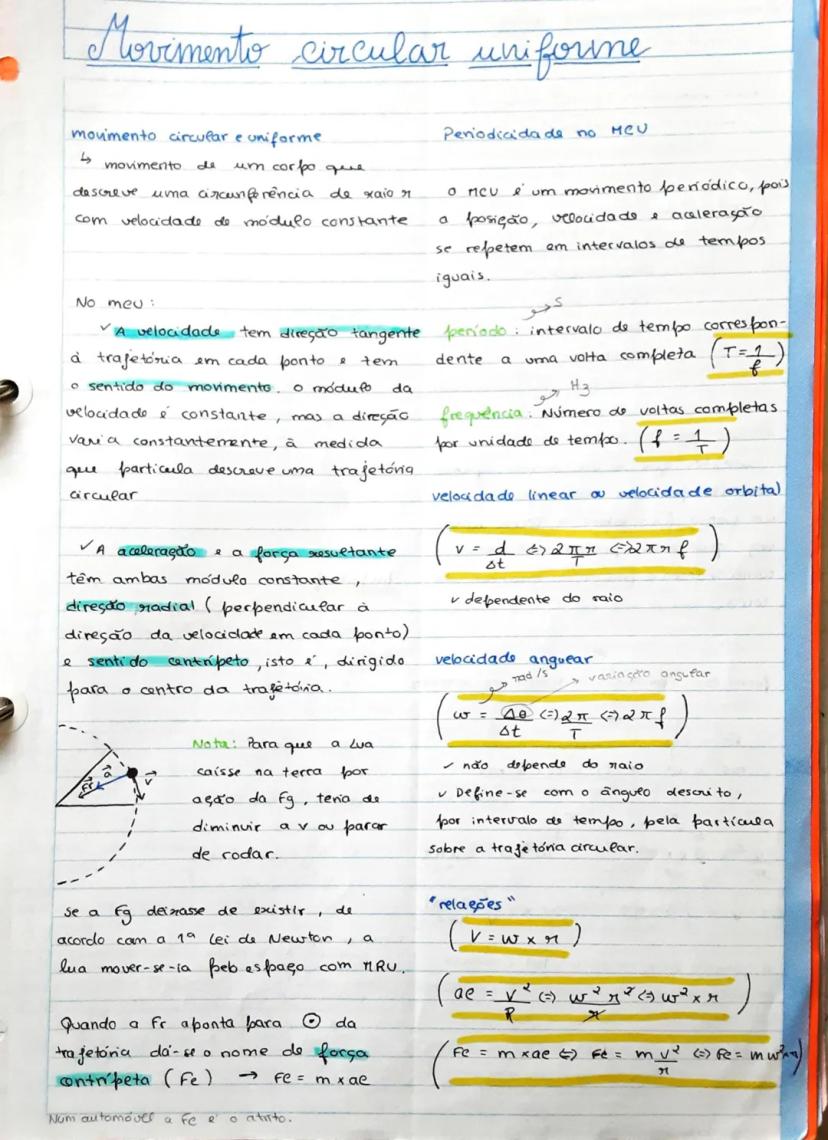 Movimento circular uniforme
movimento circular e uniforme
↳ movimento de um corpo que
descreve uma circunferência de raio r
com velocidade de módulo constante
No mcu :
✓ A velocidade tem direção tangente
à trajetória em cada ponto e tem
o sentido do movimento. O módulo da
velocidade é constante, mas a direção
varia constantemente, à medida
que partícula descreve uma trajetória
circular
✓ A aceleração e a força resultante
têm ambas módulo constante,
direção radial (perpendicular à
direção da velocidade em cada ponto)
e sentido centrípeto, isto é, dirigido
para o centro da trajetória.
Fr a v
Nota: Para que a Lua
caísse na terra por
ação da Fg, teria de
diminuir a v ou parar
de rodar.
Se a Fg deixasse de existir, de
acordo com a 1ª Lei de Newton, a
lua mover-se-ia pelo espaço com MRU.
Quando a Fr aponta para ⊙ da
trajetória dá-se o nome de força
centrípeta (Fc) → Fc = m x ac
Num automóvel a Fc é o atrito.
Periodicidade no MCU
O MCU é um movimento periódico, pois
a posição, velocidade e aceleração
se repetem em intervalos de tempos
iguais.
s
período : intervalo de tempo correspon-
dente a uma volta completa (T = 1/f)
Hz
frequência : Número de voltas completas
por unidade de tempo. (f = 1/T)
velocidade linear ou velocidade orbital
(v = d/Δt ⇔ 2πr/T ⇔ 2πrf)
✓ dependente do raio
velocidade anguear
rad/s variação angular
(w = Δθ/Δt ⇔ 2π/T ⇔ 2πf)
✓ não depende do raio
✓ Define-se com o ângulo descrito,
por intervalo de tempo, pela partícula
sobre a trajetória circular.
"relações"
(V = w x r)
(ac = v²/R ⇔ w² r²/r ⇔ w² x r)
(Fc = m x ac ⇔ Fc = m v²/r ⇔ Fc = m w² x r)